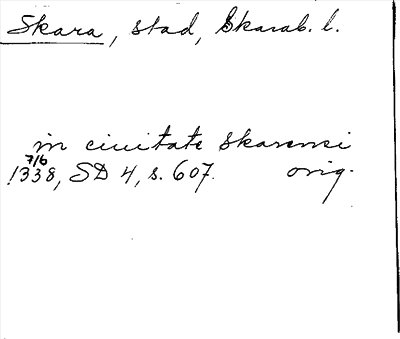 Skara, stad, Skarab. l.
in ciuitate Skarensi
7/6
1338, SD 4, s. 607. orig.